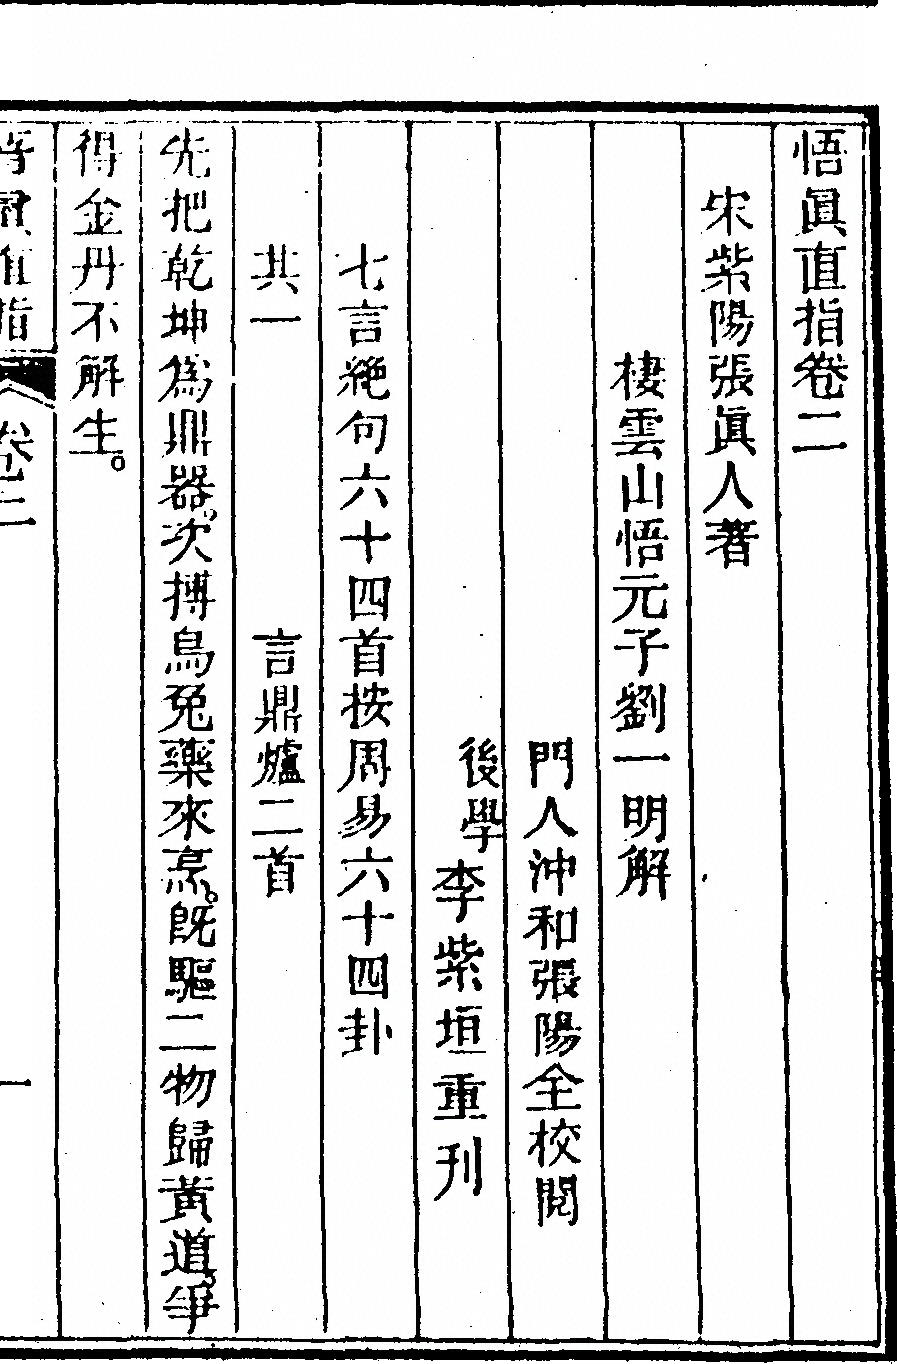 悟眞直指卷二
宋紫陽張眞人著
棲雲山悟元子劉一明解
門人沖和張陽全校閱
後學李紫垣重刊
七言絶句六十四首按周易六十四卦
其一　言鼎爐二首
先把乾坤爲鼎器。次搏烏兔藥來烹。旣驅二物歸黃道。爭
得金丹不解生。
悟眞直指　卷二　一